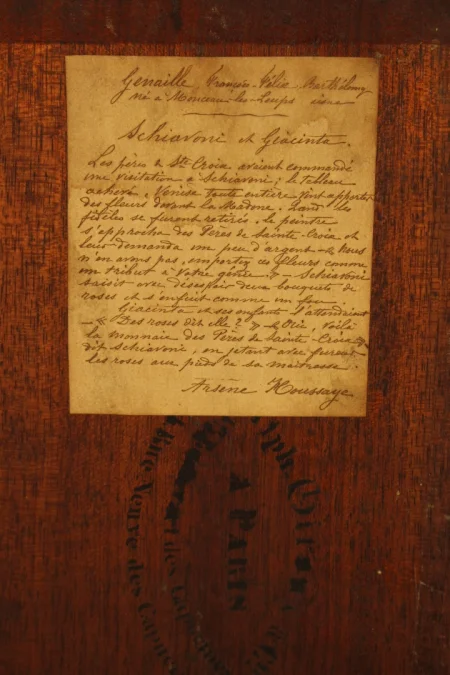 Genaille François-Félix-Barthélemy
né à Monceau-les-Loups aisne
Schiavoni et Giacinta.
Les pères de Ste Croix avaient commandé
une visitation à Schiavoni; le tableau
achevé, Venise toute entière vint apporter
des fleurs devant la Madone. Quand les
fidèles se furent retirés, le peintre
s'approcha des Pères de Sainte-Croix et
leur demanda un peu d'argent - « Nous
n'en avons pas, emportez ces fleurs comme
un tribut à votre génie. » - Schiavoni
saisit avec désespoir deux bouquets de
roses et s'enfuit comme un fou.
Giacinta et ses enfants l'attendaient
- « Des roses dit elle? » « Oui, voilà
la monnaie des Pères de Sainte-Croix »
dit Schiavoni, en jetant avec fureur
les roses aux pieds de sa maîtresse.
Arsène Houssaye
Giroux
à Paris
Rue Neuve des